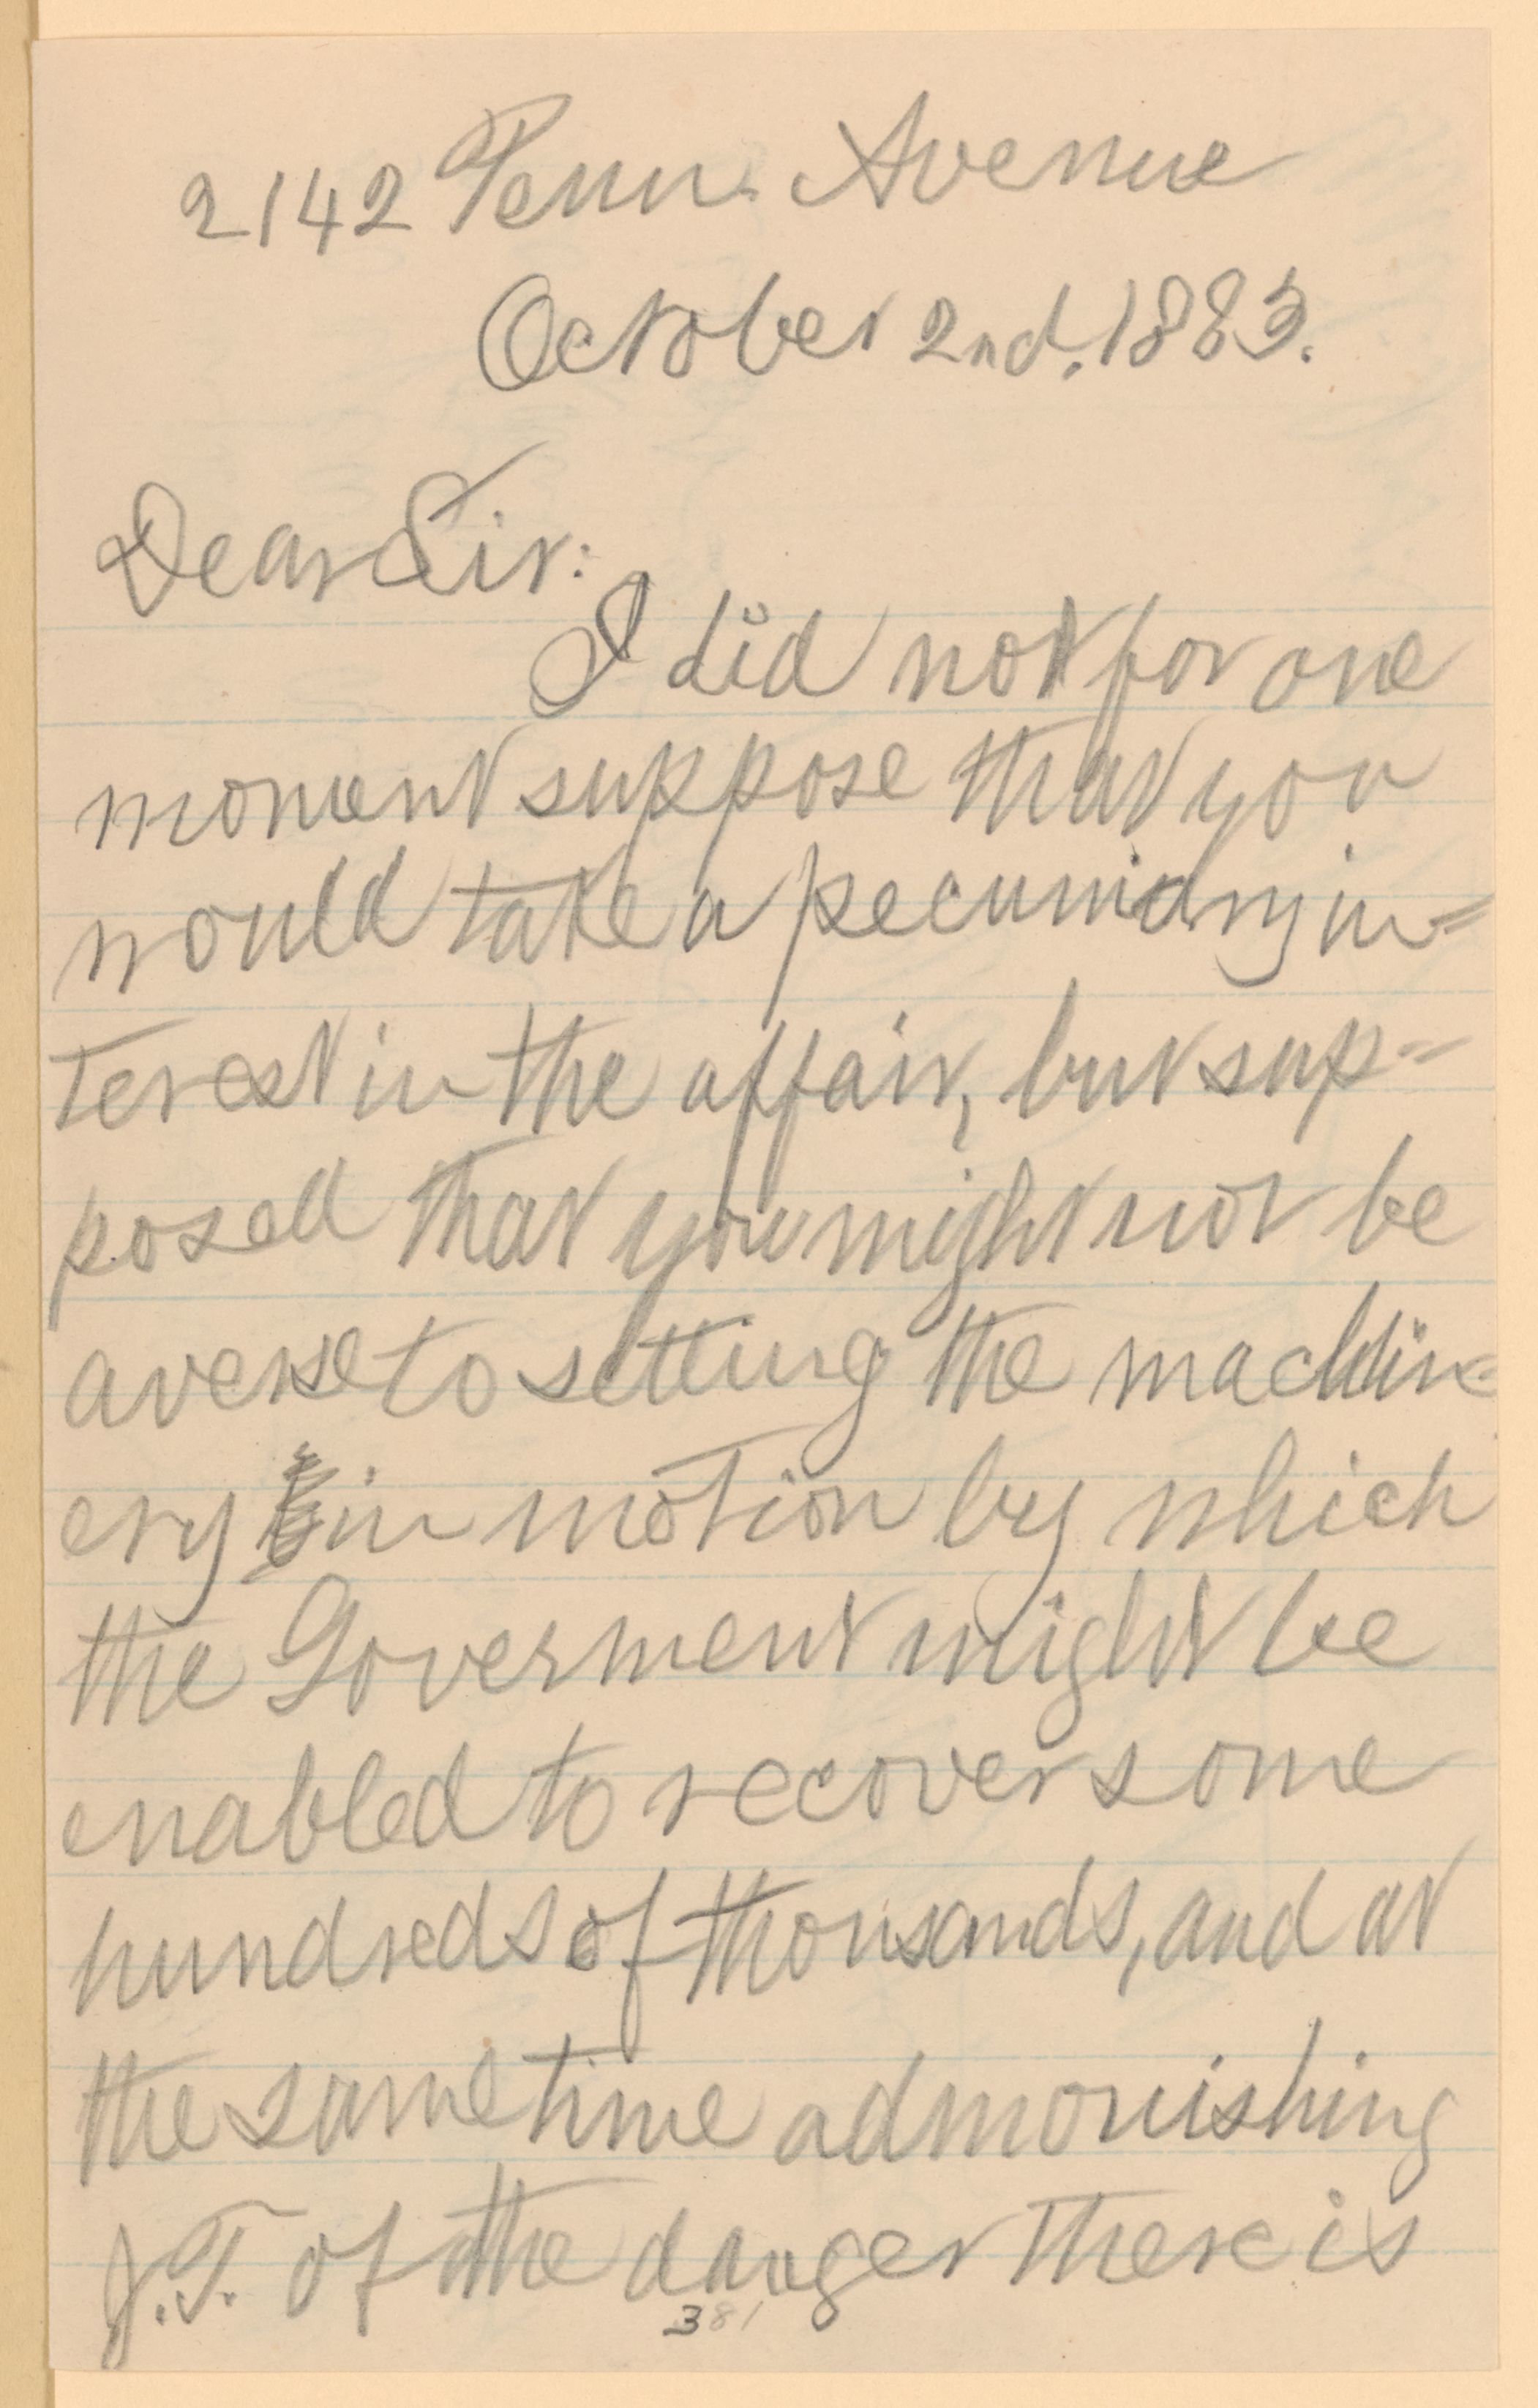 2142 Penn. Avenue
October 2nd. 1883.
Dear Sir:
I did not for one
moment suppose that you
would take a pecuniary in=
terest in the affair, but sup=
posed that you might not be
averse to setting the machin=
ery in motion by which
the Goverment might be
enabled to recover some
hundreds of thousands, and at
the same time admonishing
J.T. of the danger there is
381